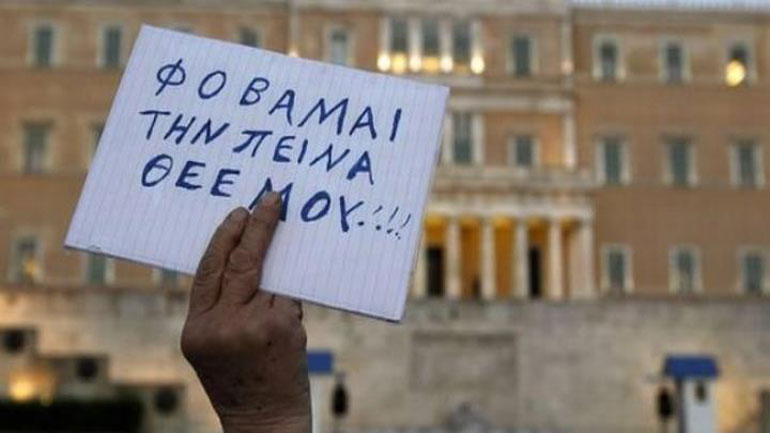 ΦΟΒΑΜΑΙ
ΤΗΝ ΠΕΙΝΑ
ΘΕΕ ΜΟΥ.!!!